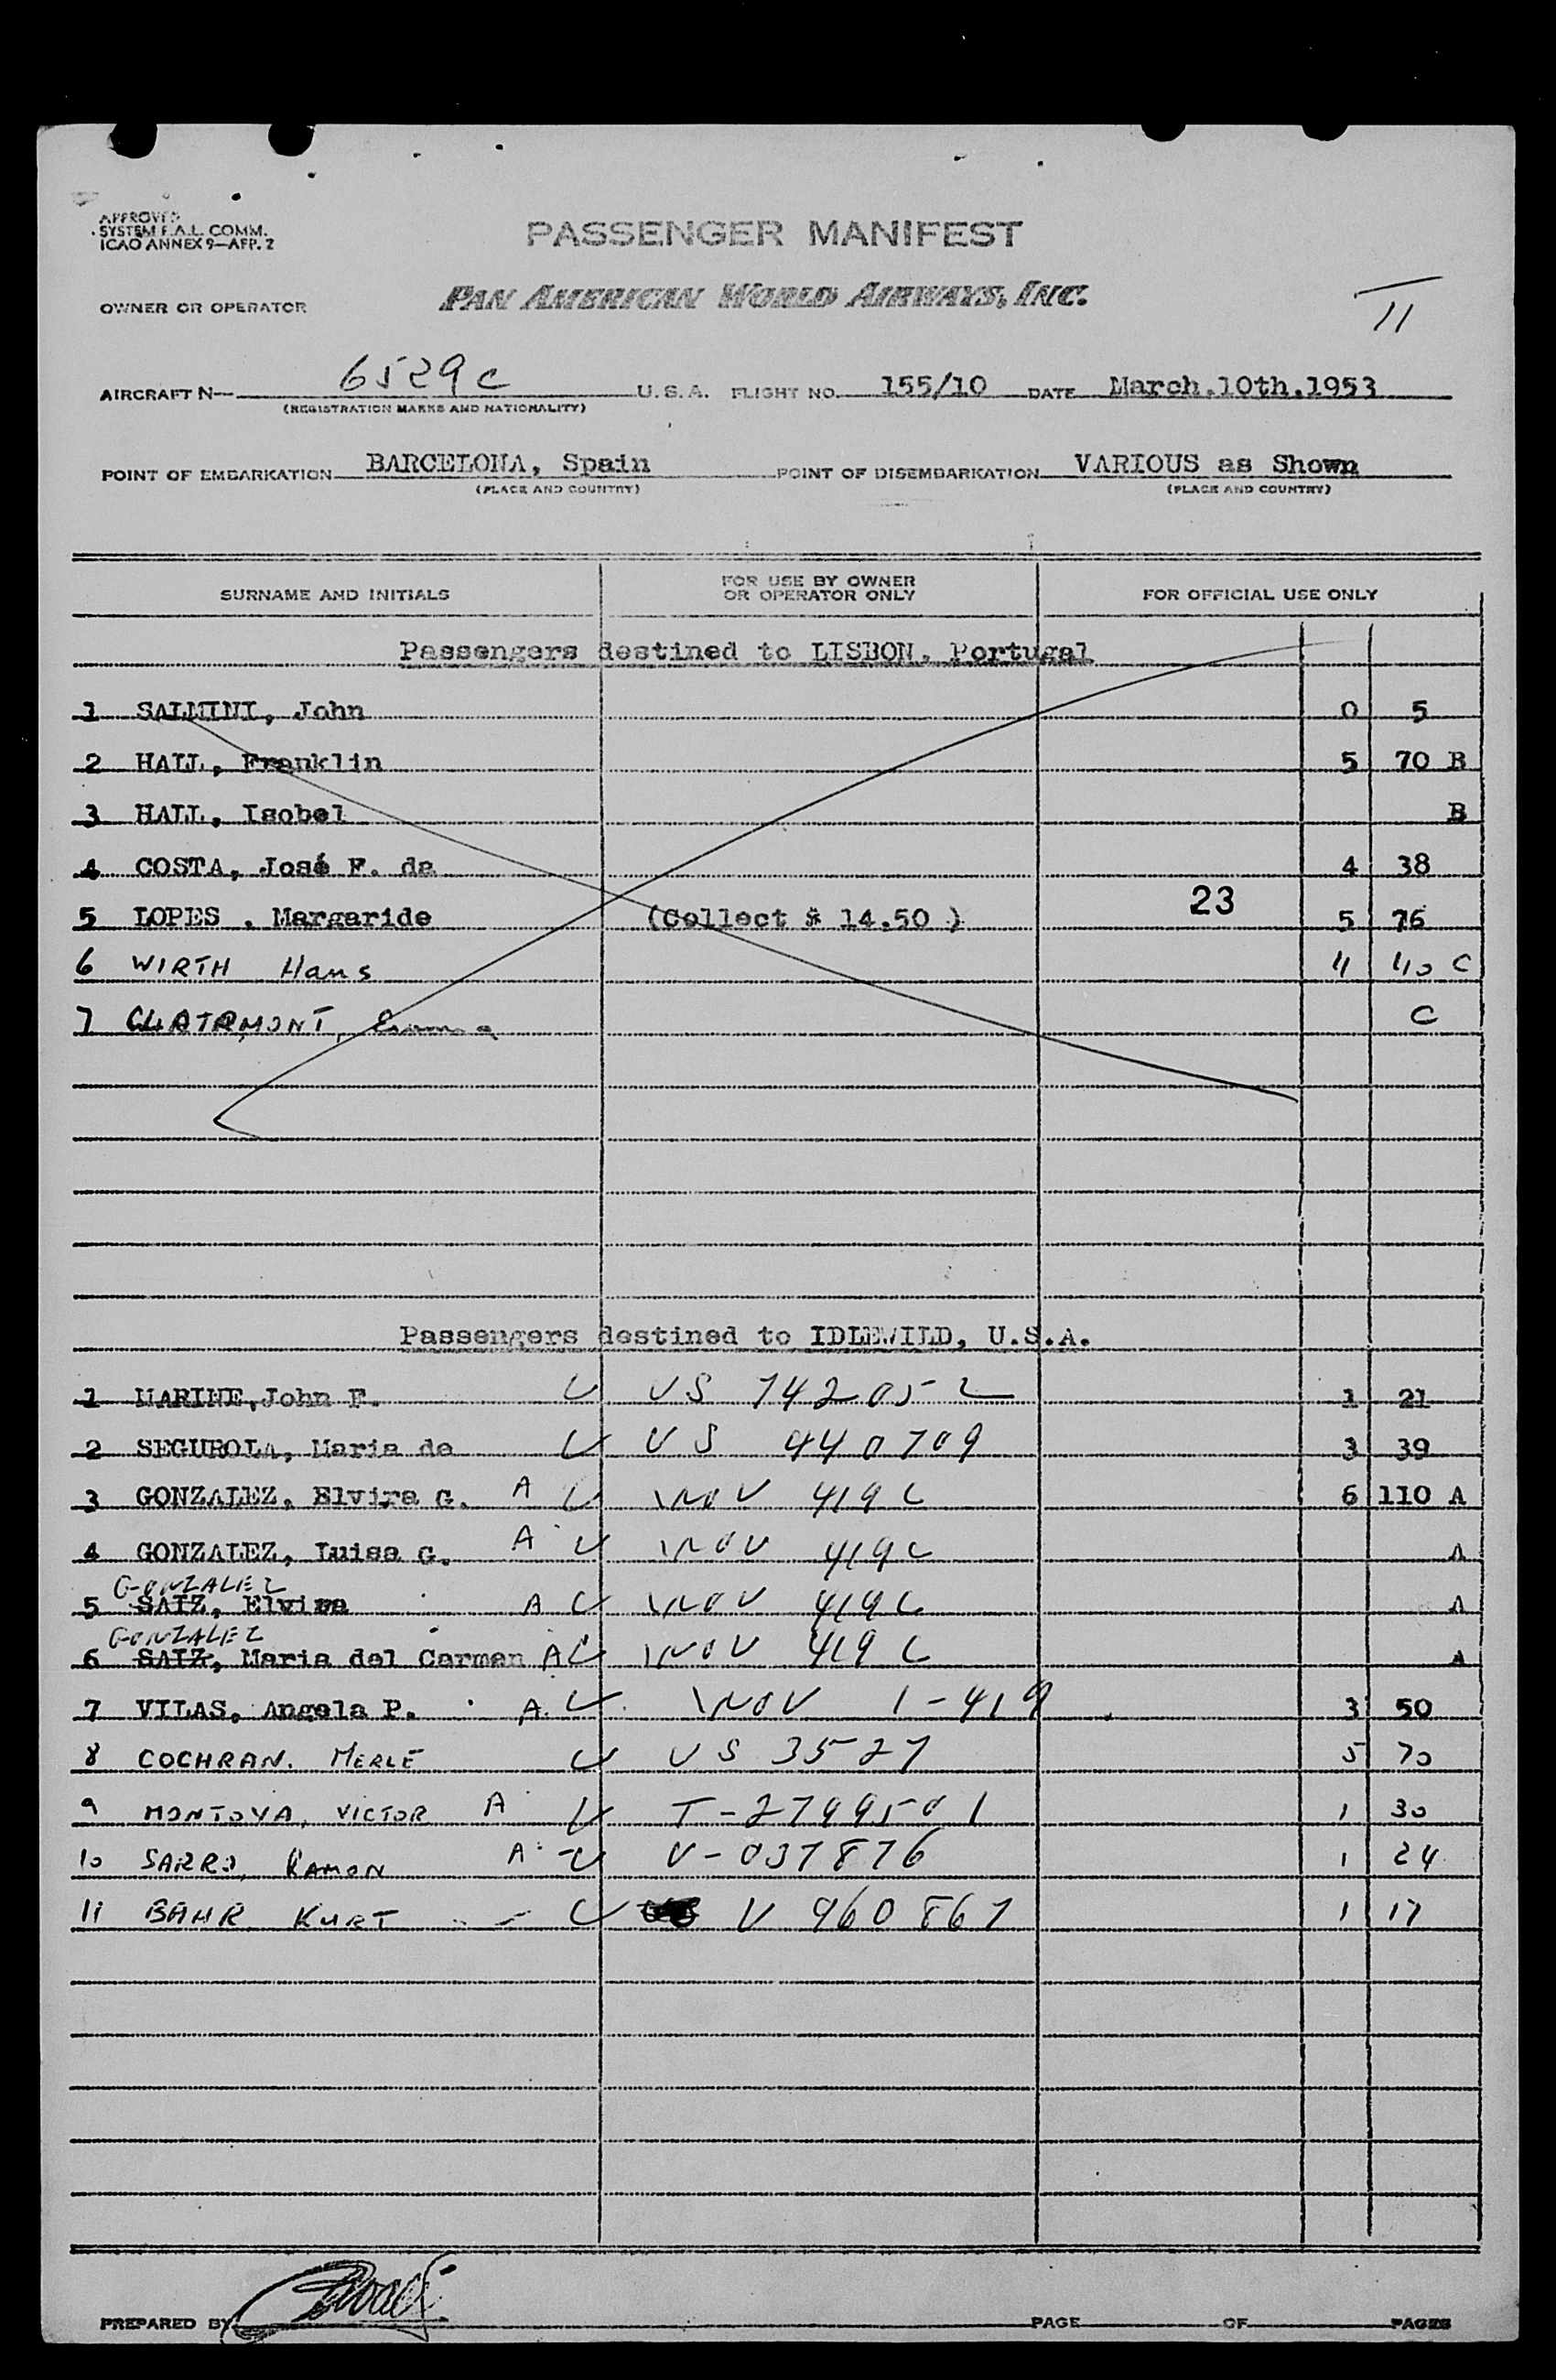 APPROVED
SYSTEM F.A.L. COMM.
ICAO ANNEX 9—APP. 2
PASSENGER MANIFEST
OWNER OR OPERATOR PAN AMERICAN WORLD AIRWAYS, INC.
11
AIRCRAFT N— 6529c U.S.A. FLIGHT NO. 155/10 DATE March.10th.1953
(REGISTRATION MARKS AND NATIONALITY)
POINT OF EMBARKATION BARCELONA, Spain POINT OF DISEMBARKATION VARIOUS as Shown
(PLACE AND COUNTRY) (PLACE AND COUNTRY)
SURNAME AND INITIALS FOR USE BY OWNER OR OPERATOR ONLY FOR OFFICIAL USE ONLY
Passengers destined to LISBON, Portugal
1 SALMINI, John 0 5
2 HALL, Franklin 5 70 B
3 HALL, Isobel B
4 COSTA, José F. da 4 38
5 LOPES . Margaride (Collect $ 14.50 ) 23 5 76
6 WIRTH Hans 4 40 C
7 C
Passengers destined to IDLEWILD, U.S.A.
1 MARINE,John F. U US 742052 1 21
2 SEGUROLA, Maria de U US 440709 3 39
3 GONZALEZ, Elvira G. A U INOV 419 C 6 110 A
4 GONZALEZ, Luisa G. A U INOV 419 C A
GONZALEZ
5 SAIZ, Elvira A U INOV 419 C A
GONZALEZ
6 SAIZ, Maria del Carmen A U INOV 419 C A
7 VILAS, Angela P. A. U INOV 1-419 3 50
8 COCHRAN. MERLE U US 3527 5 70
9 MONTOYA, VICTOR A U T-2799501 1 30
10 SARRO, RAMON A U V-037876 1 24
11 BAHR KURT U V 960867 1 17
PREPARED BY PAGE OF PAGES